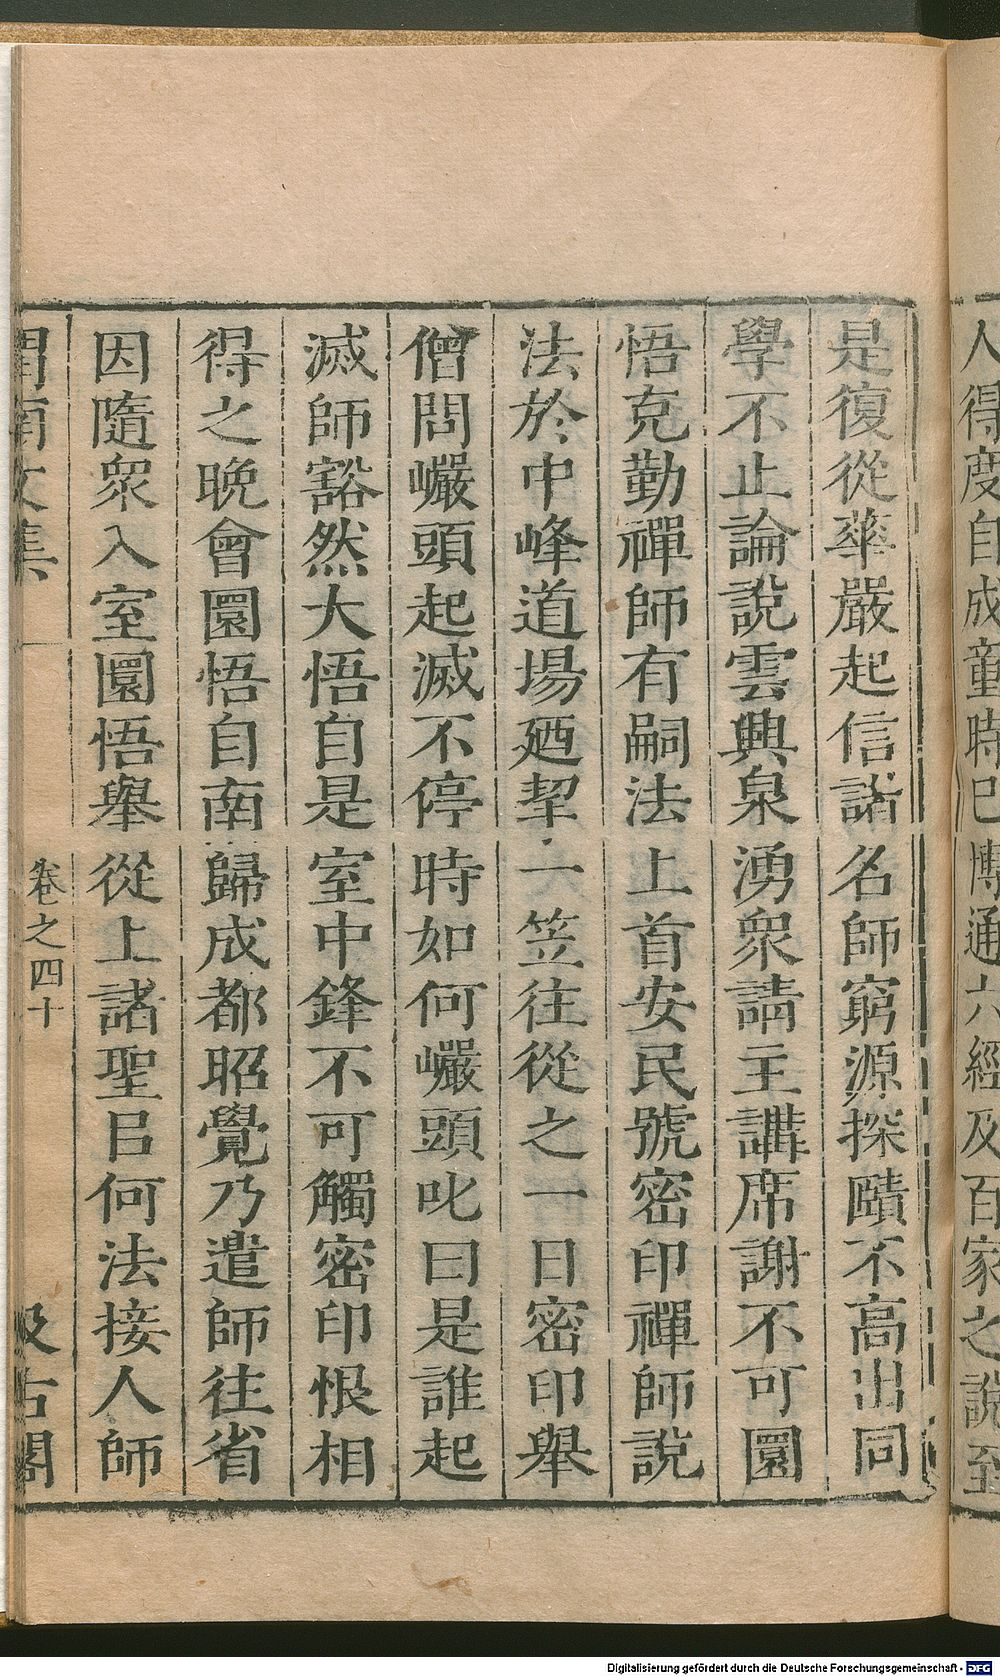 人得度自成童時已博通六經及百家之說至
是復從華嚴起信諸名師窮源探賾不高出同
學不止論說雲興泉湧衆請主講席謝不可圜
悟克勤禪師有嗣法上首安民號密印禪師說
法於中峰道場廼挈一笠往從之一日密印舉
僧問巖頭起滅不停時如何巖頭叱曰是誰起
滅師豁然大悟自是室中鋒不可觸密印恨相
得之晚會圜悟自南歸成都昭覺乃遣師往省
因隨衆入室圜悟舉從上諸聖㠯何法接人師
渭南文集 卷之四十 汲古閣
Digitalisierung gefördert durch die Deutsche Forschungsgemeinschaft - DFG